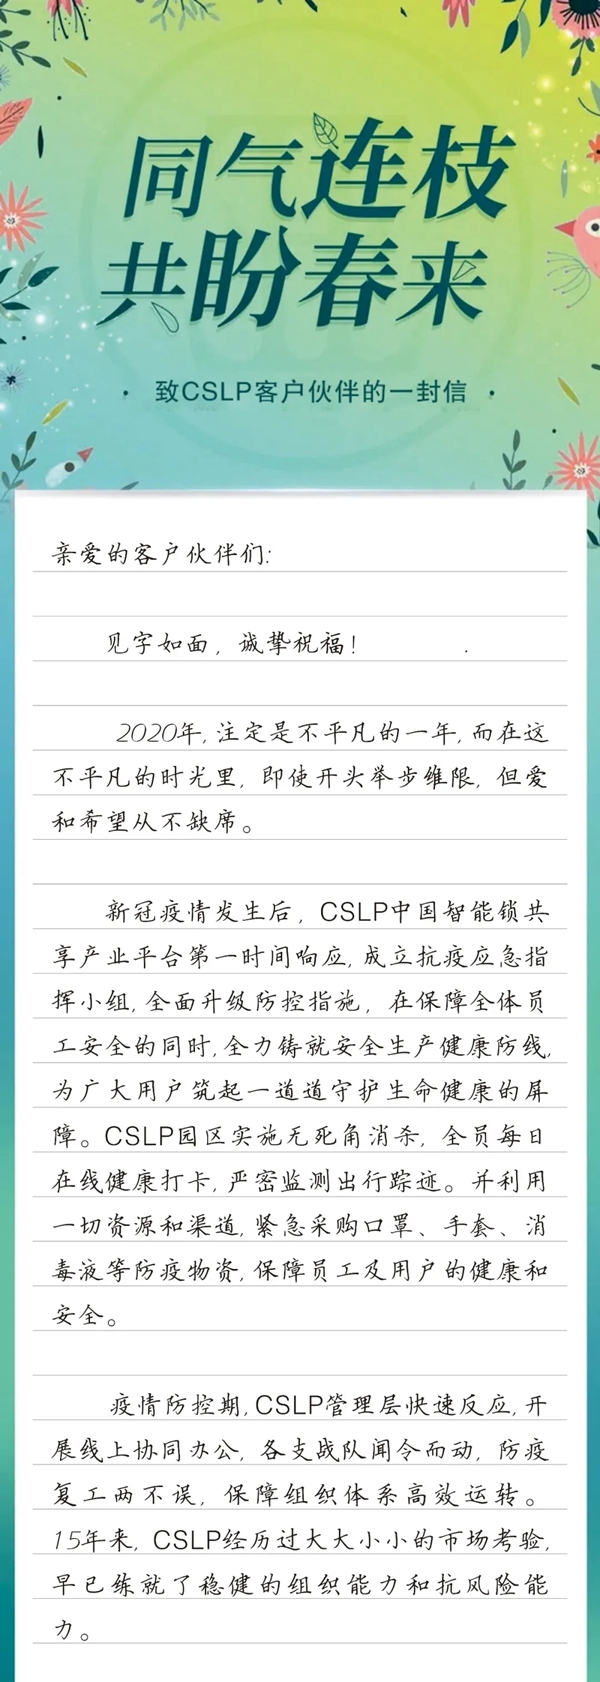 同气连枝
共盼春来
· 致CSLP客户伙伴的一封信 ·
亲爱的客户伙伴们:
见字如面，诚挚祝福！
2020年,注定是不平凡的一年,而在这
不平凡的时光里，即使开头举步维限，但爱
和希望从不缺席。
新冠疫情发生后，CSLP中国智能锁共
享产业平台第一时间响应,成立抗疫应急指
挥小组,全面升级防控指施，在保障全体员
工安全的同时,全力铸就安全生产健康防线,
为广大用户筑起一道道守护生命健康的屏
障。CSLP园区实施无死角消杀，全员每日
在线健康打卡,严密监测出行踪迹。并利用
一切资源和渠道,紧急采购口罩、手套、消
毒液等防疫物资,保障员工及用户的健康和
安全。
疫情防控期,CSLP管理层快速反应,开
展线上协同办公，各支战队闻令而动，防疫
复工两不误，保障组织体系高效运转。
15年来，CSLP经历过大大小小的市场考验,
早已练就了稳健的组织能力和抗风险能
力。